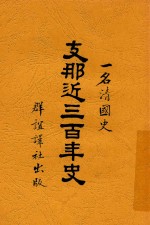 一名清國史
支那近三百年史
群誼譯社出版